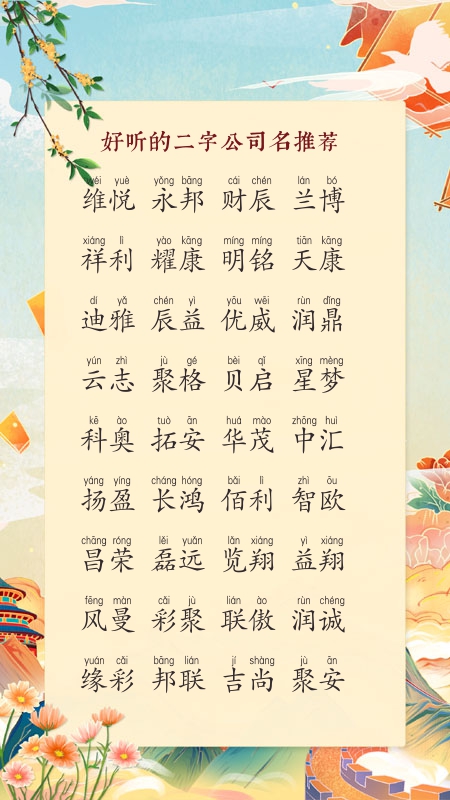 好听的二字公司名推荐
wéi yuè yǒng bāng cái chén lán bó
维悦 永邦 财辰 兰博
xiáng lì yào kāng míng míng tiān kāng
祥利 耀康 明铭 天康
dí yǎ chén yì yōu wēi rùn dǐng
迪雅 辰益 优威 润鼎
yún zhì jù gé bèi qǐ xīng mèng
云志 聚格 贝启 星梦
kē ào tuò ān huá mào zhōng huì
科奥 拓安 华茂 中汇
yáng yíng cháng hóng bǎi lì zhì ōu
扬盈 长鸿 佰利 智欧
chāng róng lěi yuǎn lǎn xiáng yì xiáng
昌荣 磊远 览翔 益翔
fēng màn cǎi jù lián ào rùn chéng
风曼 彩聚 联傲 润诚
yuán cǎi bāng lián jí shàng jù ān
缘彩 邦联 吉尚 聚安